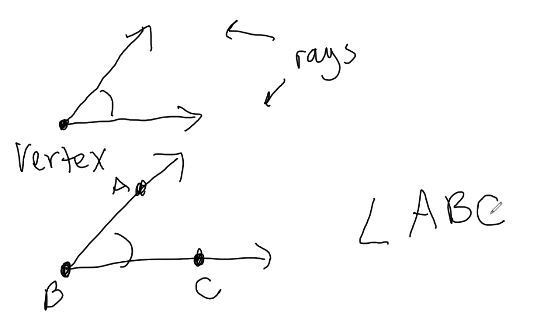 rays
Vertex
A
∠ ABC
B
C